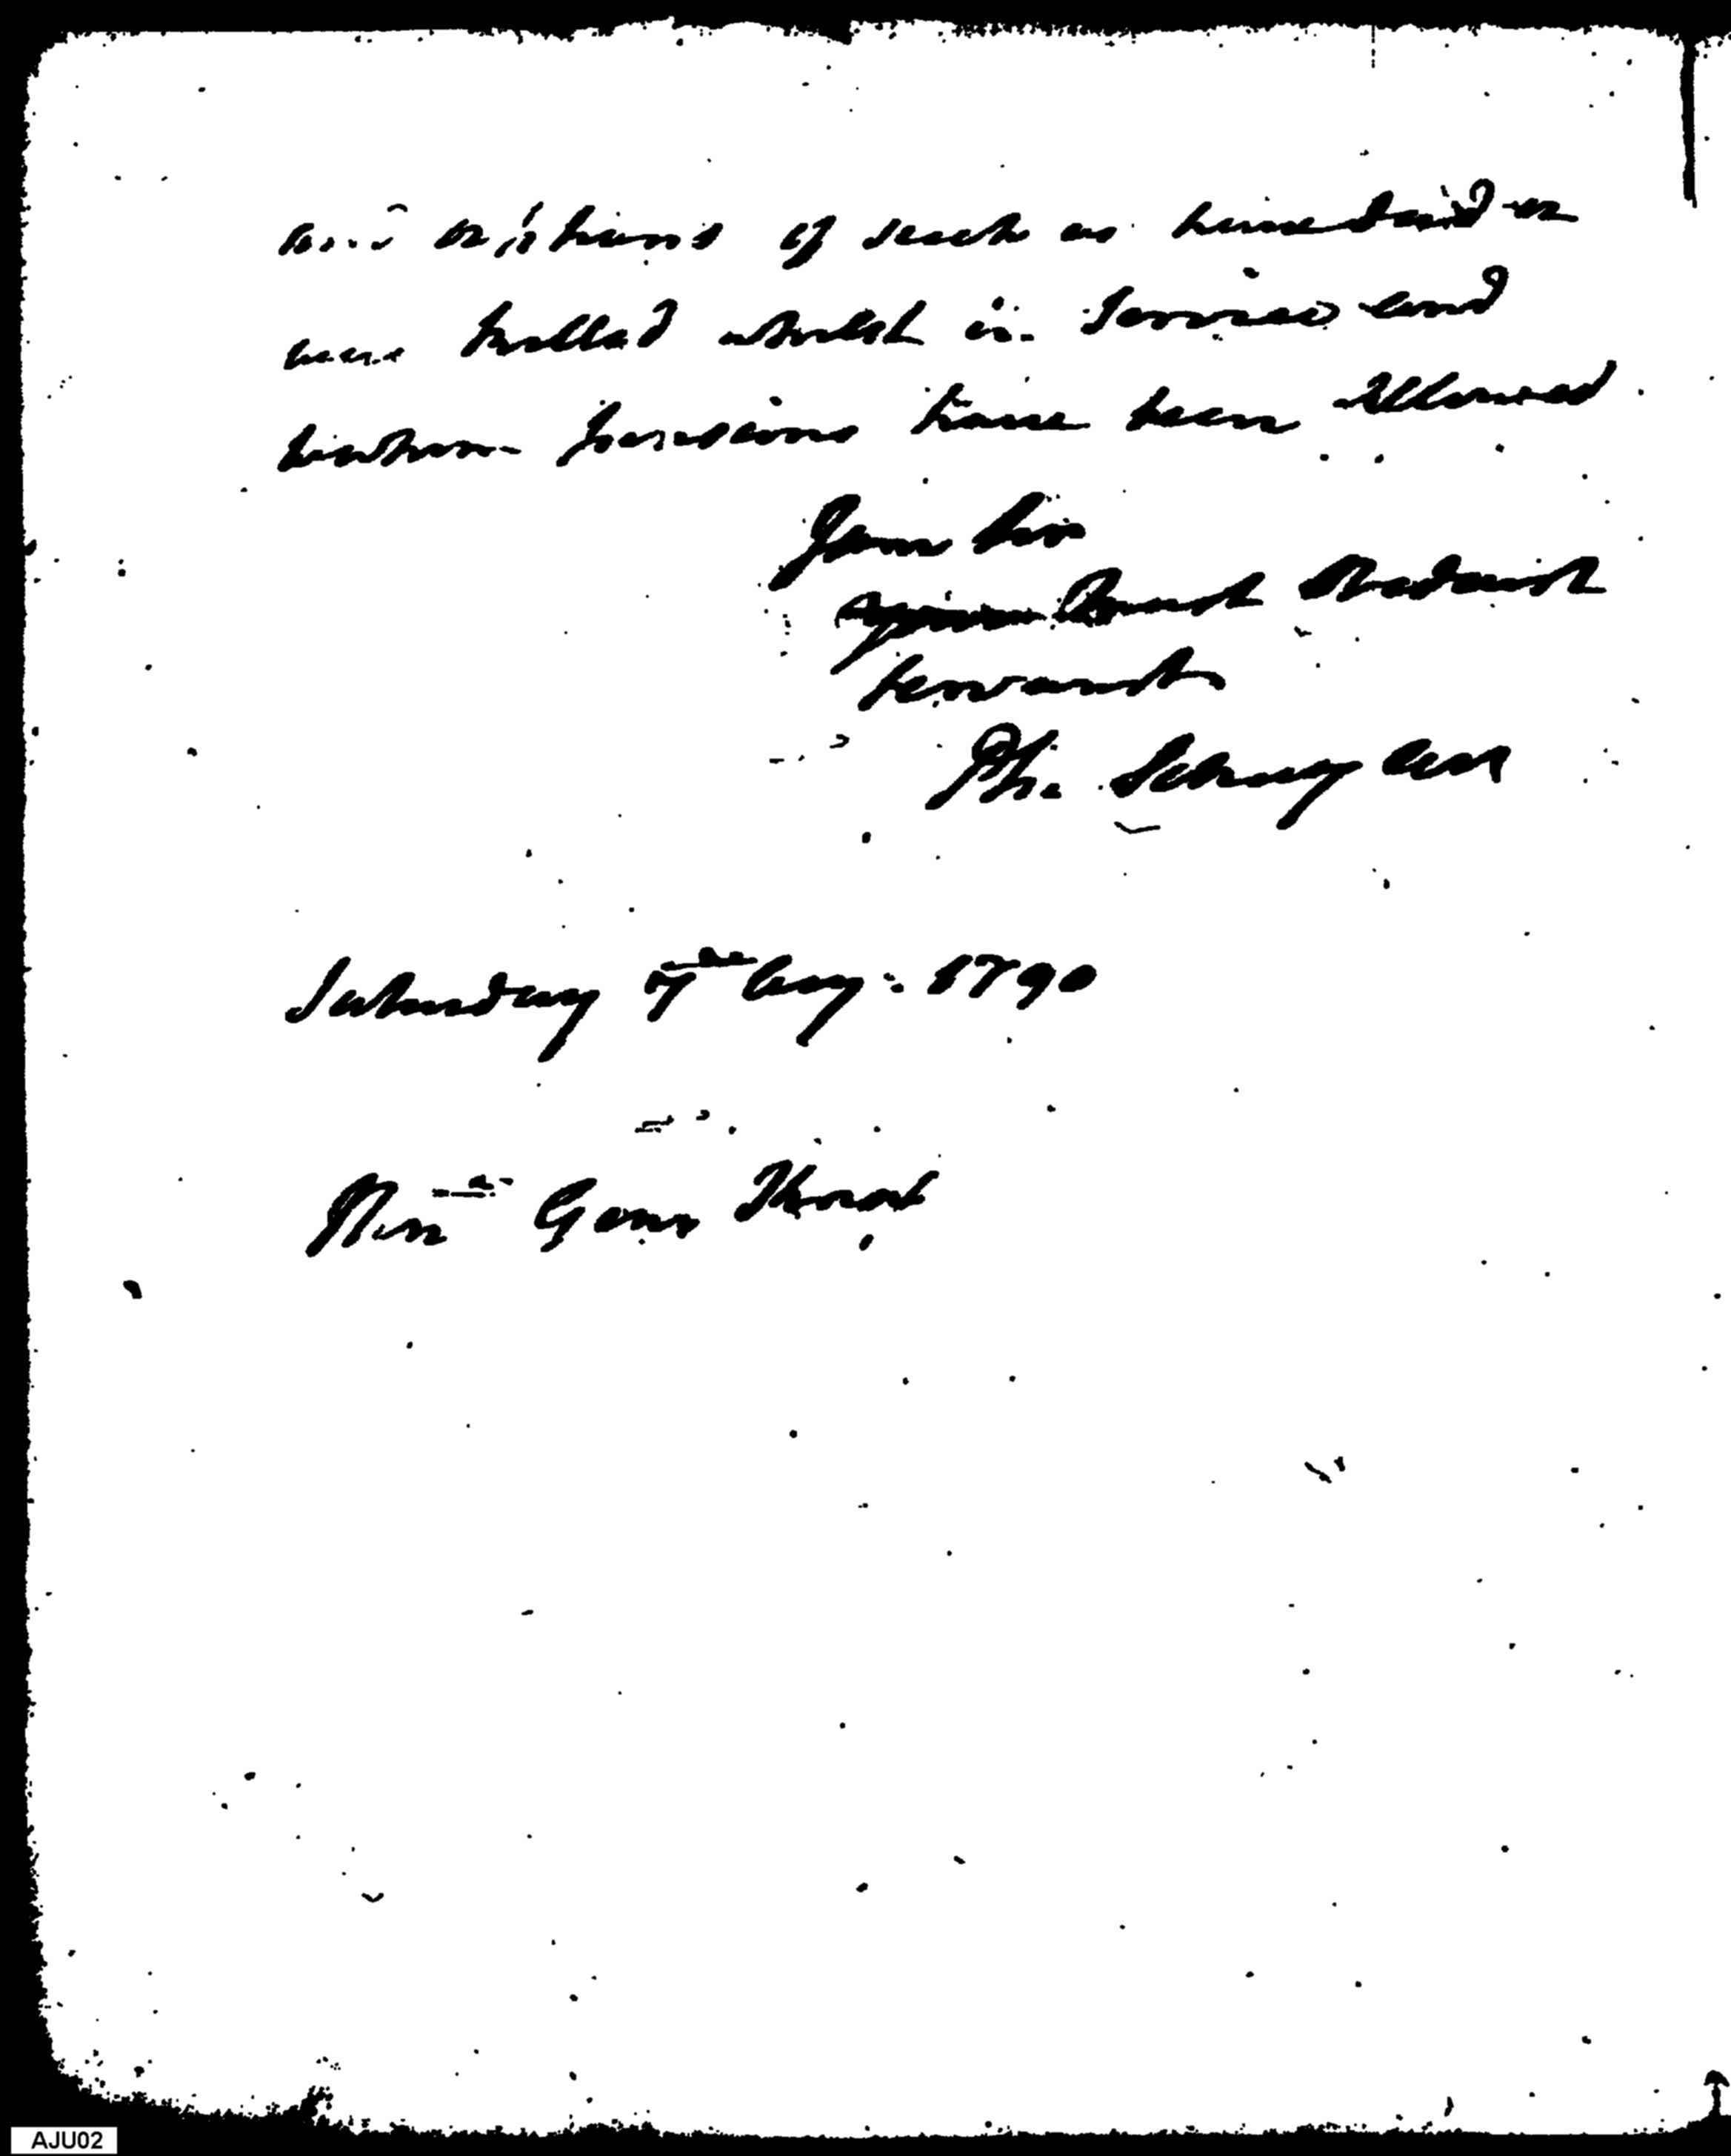 and orphans of such as have died or
been killed whilst in Service and
to whom pensions have been allowed
I am Sir
Your most Obedient
Servant
Ph. Schuyler
Saturday 7th Aug: 1790
Gen
AJU02